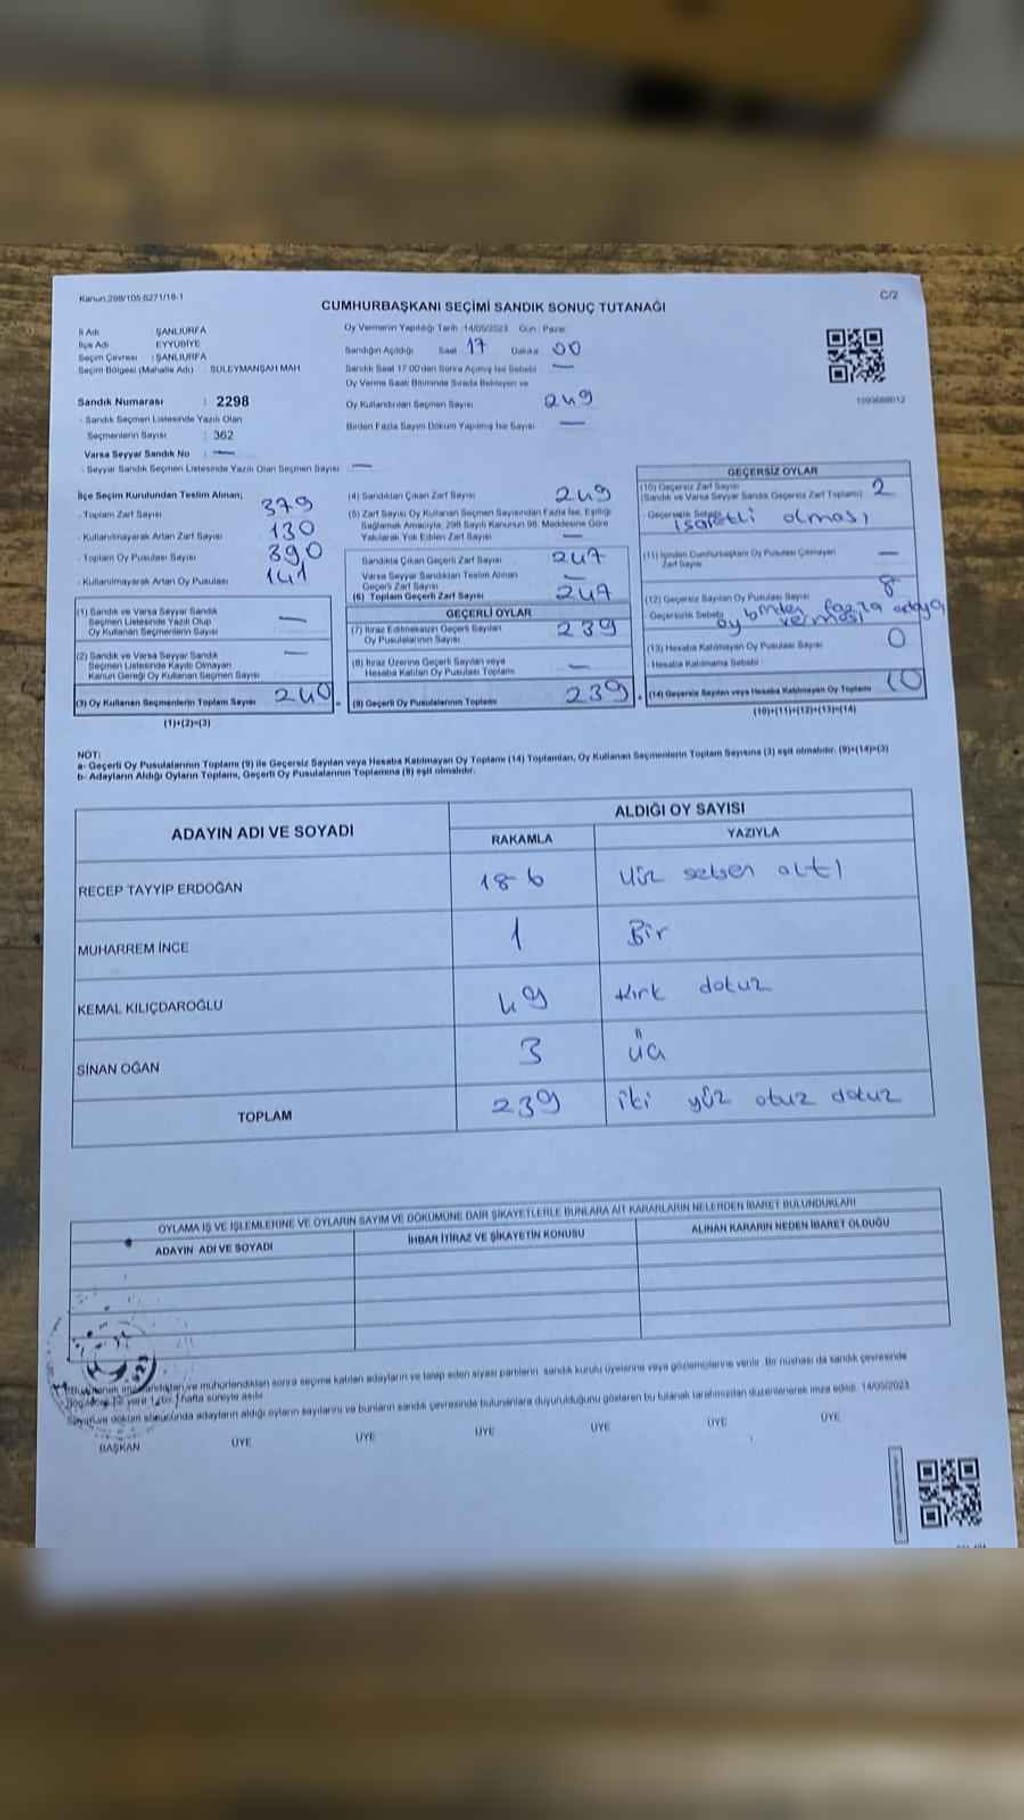 Kanun:298/105 6271/16-1
C/2
CUMHURBAŞKANI SEÇİMİ SANDIK SONUÇ TUTANAĞI
İl Adı ŞANLIURFA
İlçe Adı EYYUBİYE
Seçim Çevresi : ŞANLIURFA
Seçim Bölgesi (Mahalle Adı) SULEYMANŞAH MAH
Sandık Numarası : 2298
- Sandık Seçmen Listesinde Yazılı Olan
Seçmenlerin Sayısı : 362
Varsa Seyyar Sandık No : —
- Seyyar Sandık Seçmen Listesinde Yazılı Olan Seçmen Sayısı —
Oy Vermenin Yapıldığı Tarih :14/05/2023 Gün : Pazar
Sandığın Açıldığı Saat 17 Dakika 00
Sandık Saat 17:00'den Sonra Açılmış İse Sebebi —
Oy Verme Saati Bitiminde Sırada Bekleyen ve
Oy Kullandırılan Seçmen Sayısı 249
Birden Fazla Sayım Döküm Yapılmış İse Sayısı —
İlçe Seçim Kurulundan Teslim Alınan;
- Toplam Zarf Sayısı 379
- Kullanılmayarak Artan Zarf Sayısı 130
- Toplam Oy Pusulası Sayısı 390
- Kullanılmayarak Artan Oy Pusulası 141
(1) Sandık ve Varsa Seyyar Sandık
Seçmen Listesinde Yazılı Olup
Oy Kullanan Seçmenlerin Sayısı —
(2) Sandık ve Varsa Seyyar Sandık
Seçmen Listesinde Kayıtlı Olmayan
Kanun Gereği Oy Kullanan Seçmen Sayısı —
(3) Oy Kullanan Seçmenlerin Toplam Sayısı 240
(1)+(2)=(3)
(4) Sandıktan Çıkan Zarf Sayısı 249
(5) Zarf Sayısı Oy Kullanan Seçmen Sayısından Fazla İse, Eşitliği
Sağlamak Amacıyla, 298 Sayılı Kanunun 98. Maddesine Göre
Yakılarak Yok Edilen Zarf Sayısı —
Sandıkta Çıkan Geçerli Zarf Sayısı 247
Varsa Seyyar Sandıktan Teslim Alınan
Geçerli Zarf Sayısı —
(6) Toplam Geçerli Zarf Sayısı 247
GEÇERLİ OYLAR
(7) İtiraz Edilmeksizin Geçerli Sayılan
Oy Pusulalarının Sayısı 239
(8) İtiraz Üzerine Geçerli Sayılan veya
Hesaba Katılan Oy Pusulası Toplamı —
(9) Geçerli Oy Pusulalarının Toplamı 239
GEÇERSİZ OYLAR
(10) Geçersiz Zarf Sayısı
(Sandık ve Varsa Seyyar Sandık Geçersiz Zarf Toplamı) 2
- Geçersizlik Sebebi
işaretli olması
(11) İçinden Cumhurbaşkanı Oy Pusulası Çıkmayan
Zarf Sayısı —
(12) Geçersiz Sayılan Oy Pusulası Sayısı 8
Geçersizlik Sebebi birden fazla adaya
oy vermesi
(13) Hesaba Katılmayan Oy Pusulası Sayısı 0
- Hesaba Katılmama Sebebi
(14) Geçersiz Sayılan veya Hesaba Katılmayan Oy Toplamı 10
(10)+(11)+(12)+(13)=(14)
NOT:
a- Geçerli Oy Pusulalarının Toplamı (9) ile Geçersiz Sayılan veya Hesaba Katılmayan Oy Toplamı (14) Toplamları, Oy Kullanan Seçmenlerin Toplam Sayısına (3) eşit olmalıdır. (9)+(14)=(3)
b- Adayların Aldığı Oyların Toplamı, Geçerli Oy Pusulalarının Toplamına (9) eşit olmalıdır.
ADAYIN ADI VE SOYADI
ALDIĞI OY SAYISI
RAKAMLA YAZIYLA
RECEP TAYYİP ERDOĞAN 186 Yüz seksen altı
MUHARREM İNCE 1 Bir
KEMAL KILIÇDAROĞLU 49 kırk dokuz
SİNAN OĞAN 3 üç
TOPLAM 239 iki yüz otuz dokuz
OYLAMA İŞ VE İŞLEMLERİNE VE OYLARIN SAYIM VE DÖKÜMÜNE DAİR ŞİKAYETLERLE BUNLARA AİT KARARLARIN NELERDEN İBARET BULUNDUKLARI
ADAYIN ADI VE SOYADI İHBAR İTİRAZ VE ŞİKAYETİN KONUSU ALINAN KARARIN NEDEN İBARET OLDUĞU
ve mühürlendikten sonra seçime katılan adayların ve talep eden siyasi partilerin sandık kurulu üyelerine veya gözlemcilerine verilir. Bir nüshası da sandık çevresinde
1 hafta süreyle asılır
sonucunda adayların aldığı oyların sayılarını ve bunların sandık çevresinde bulunanlara duyurulduğunu gösteren bu tutanak tarafımızdan düzenlenerek imza edildi. 14/05/2023
BAŞKAN ÜYE ÜYE ÜYE ÜYE ÜYE ÜYE